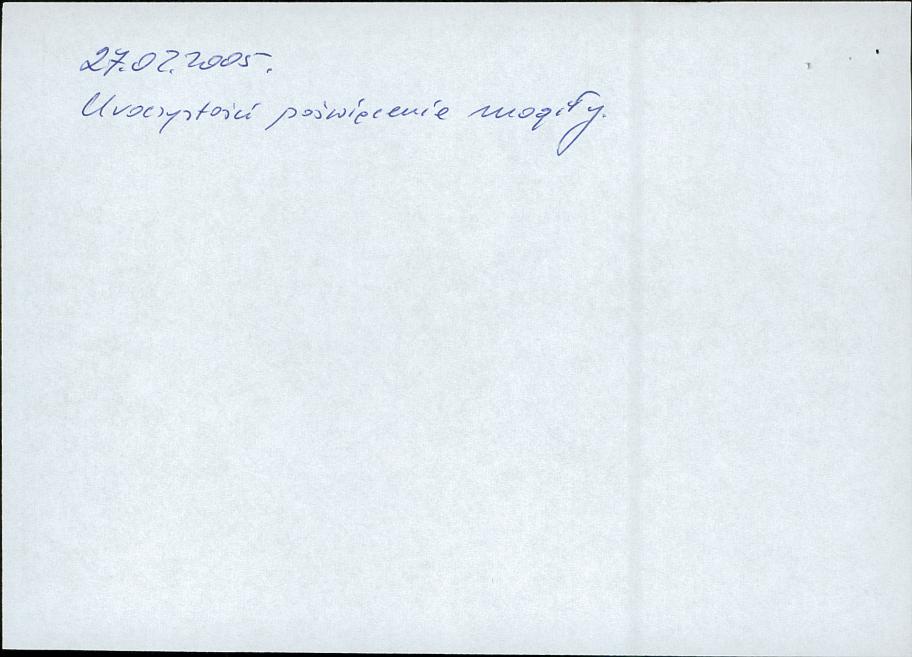 27.02.2005.
Uroczystości poświęcenie mogiły.